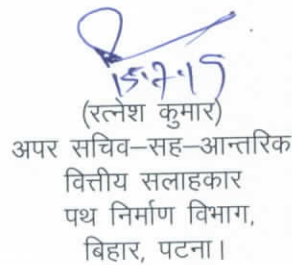 15.7.15
(रत्नेश कुमार)
अपर सचिव–सह–आन्तरिक
वित्तीय सलाहकार
पथ निर्माण विभाग,
बिहार, पटना।